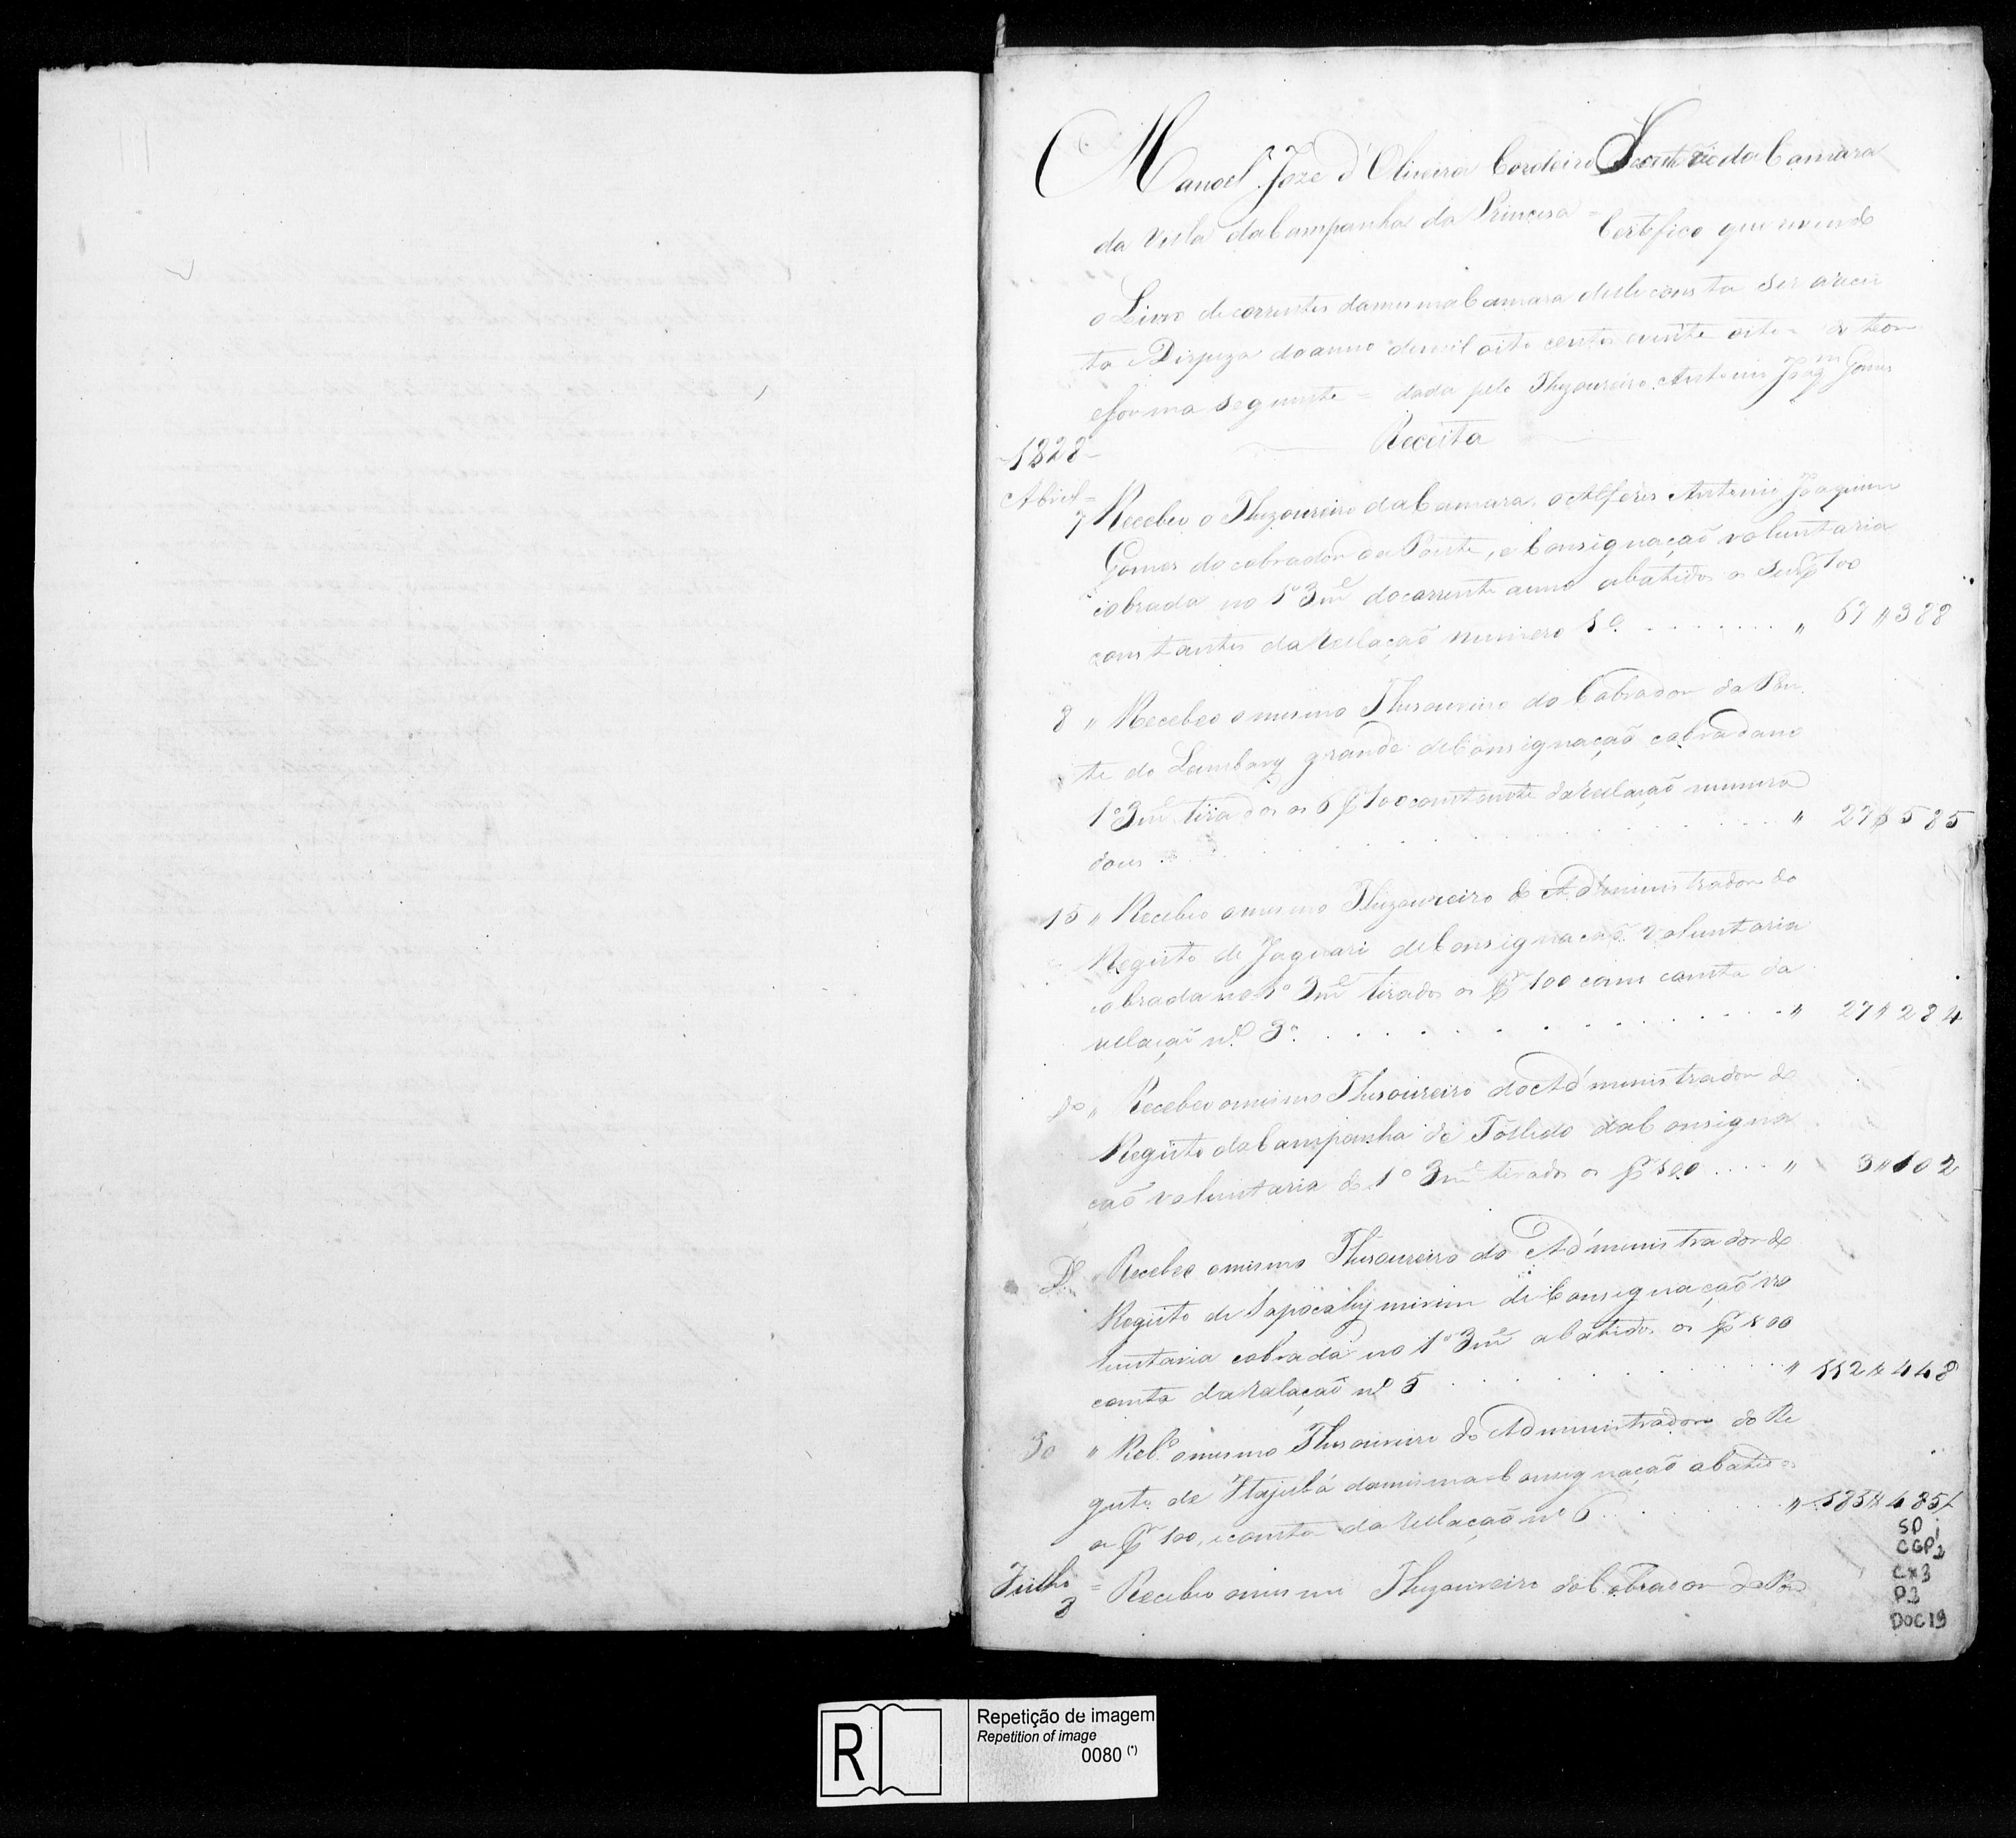 Manoel Joze d'Oliveira Cordeiro Secretario da Camara
da Villa da Campanha da Princesa = Certefico que revendo
o Livro de correntes da mesma Camara delle consta ser a recei
ta e Dispeza do anno de mil oito centos e vinte oito = do theor
e forma seguinte = dada pelo Thezoureiro Antonio Joaqm Gomes
Receita
1828
Abril =
7 Recebeo o Thezoureiro da Camara, o Alferes Antonio Joaquim
Gomes do cobrador da Ponte, e Consignação voluntaria
cobrada no 1º 3me do corrente anno abatidos os Seis pr 100
constantes da Rellação numero 1º . . . . . . . . " 67 " 388
8 " Recebeo o mesmo Thesoureiro do Cobrador da Pon
te do Lambary grande de Consignação cobrada no
1º 3me tirados os 6 pr 100 constante da rellação numero
dous . . . . . . . . . . . . . . . . " 27 $ 585
15 " Recebeo o mesmo Thezoureiro do Administrador do
Registo de Jaguari de Consignação voluntaria
cobrada no 1º 3me tirados os pr 100 como consta da
rellação nº 3º . . . . . . . . . . . . . . " 27 " 284
do " Recebeo o mesmo Thesoureiro do Administrador do
Registo da Campanha de Tolledo da Consigna
ção voluntaria do 1º 3me tirados os pr 100 . . . . " 3 " 102
Do " Recebeo o mesmo Thesoureiro do Administrador do
Registo de Sapocahy mirim de Consignação vo
luntaria cobrada no 1º 3me abatidos os pr 100
consta da relação nº 5 . . . . . . . . . " 112 $ 448
30 " Rebº o mesmo Thesoureiro do Administrador do Re
gisto de Itajubá da mesma Consignação abatidos
os pr 100, e consta da rellação nº 6 . . . . . . " 185 $ 485
Julho
3 = Recebeo o mesmo Thezoureiro do Cobrador da Pon
SP
CGP3
Cx3
P3
DOC 19
R
Repetição de imagem
Repetition of image
0080 (*)